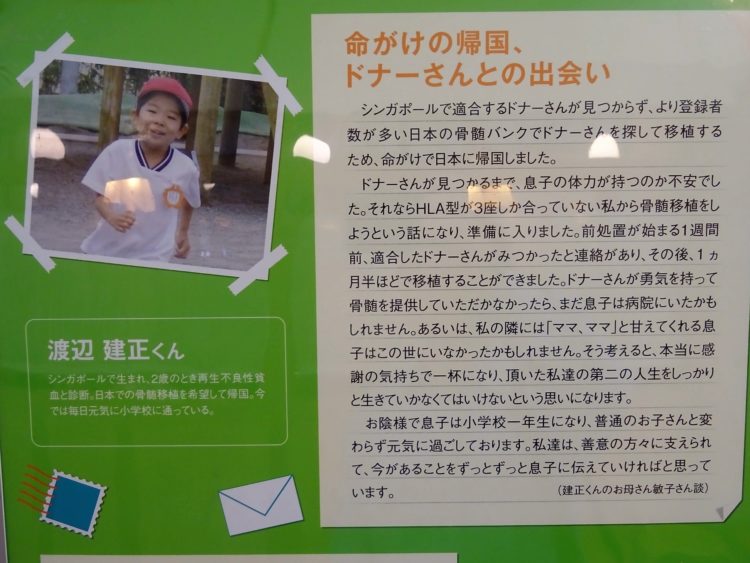 命がけの帰国、
ドナーさんとの出会い
シンガポールで適合するドナーさんが見つからず、より登録者
数が多い日本の骨髄バンクでドナーさんを探して移植する
ため、命がけで日本に帰国しました。
ドナーさんが見つかるまで、息子の体力が持つのか不安でし
た。それならHLA型が3座しか合っていない私から骨髄移植をし
ようという話になり、準備に入りました。前処置が始まる1週間
前、適合したドナーさんがみつかったと連絡があり、その後、1ヵ
月半ほどで移植することができました。ドナーさんが勇気を持って
骨髄を提供していただかなかったら、まだ息子は病院にいたかも
しれません。あるいは、私の隣には「ママ、ママ」と甘えてくれる息
子はこの世にいなかったかもしれません。そう考えると、本当に感
謝の気持ちで一杯になり、頂いた私達の第二の人生をしっかり
と生きていかなくてはいけないという思いになります。
お陰様で息子は小学校一年生になり、普通のお子さんと変
わらず元気に過ごしております。私達は、善意の方々に支えられ
て、今があることをずっとずっと息子に伝えていければと思って
います。
（建正くんのお母さん敏子さん談）
渡辺 建正くん
シンガポールで生まれ、2歳のとき再生不良性貧
血と診断。日本での骨髄移植を希望して帰国。今
では毎日元気に小学校に通っている。